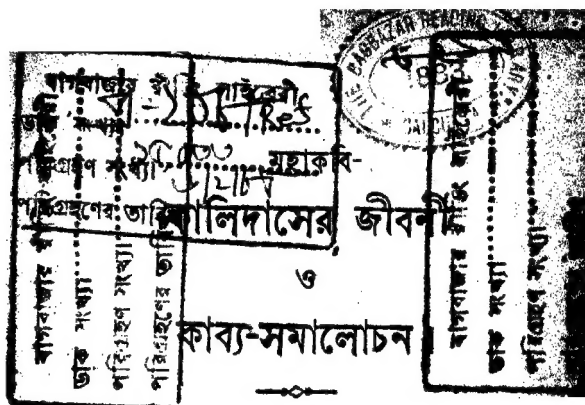 THE BAGBAZAR READING
188
বাগবাজার রীডিং লাইব্রেরী
ডাক সংখ্যা
পরিগ্রহণ সংখ্যা
পরিগ্রহণের তারিখ
মহাকবি-
কালিদাসের জীবনী
ও
কাব্য-সমালোচন
বাগবাজার রীডিং লাইব্রেরী
ডাক সংখ্যা
পরিগ্রহণ সংখ্যা
পরিগ্রহণের তারি
বাগবাজার রীডিং লাইব্রেরী
ডাক সংখ্যা
পরিগ্রহণ সংখ্যা